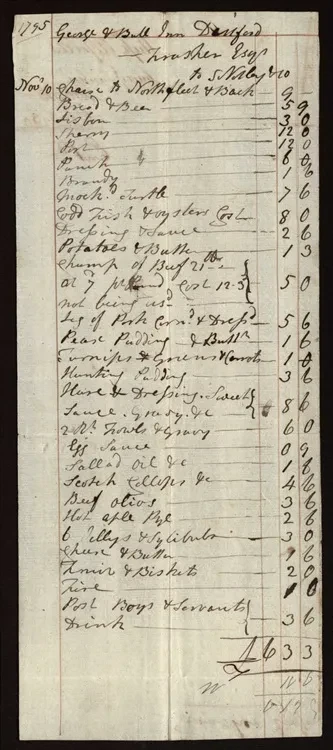 1795 George & Bull Inn Dartford
Thrasher Esqr
to S Nisbey & co
Novr 10 Chaise to Northfleet & Back 9 -
Bread & Beer 5 9
Lisbon 3 0
Sherry 12 0
Port 12 0
Punch 6 0
Brandy 1 6
Mock Turtle 7 6
Codd Fish & oysters Cost 8 0
Dressing & Sauce 2 6
Potatoes & Butter 1 3
Chump of Beef 21 lb
at 7 pr Cost 12-3 5 0
not being usd
Leg of Pork Cornd & Dressd 5 6
Pease Pudding & Buttr 1 6
Turnips & Greens & Carrots 1 0
Hunting Pudding 3 6
Hare & Dressing. Sweet
Sauce. Gravy. &c 8 6
2 Rt Fowls & Gravy 6 0
Egg Sauce 0 9
Sallad Oil &c 1 8
Scotch Collops &c 4 6
Beef Olives 3 6
Hot aple Pye 2 6
6 Jellys & Syllibubs 3 0
Cheese & Butter 1 6
Fruit & Biskets 2 0
Fire 1 0
Post Boys & Servants
Drink 3 6
£ 6 3 3